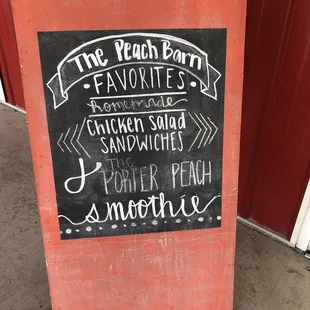 The Peach Barn
• FAVORITES •
homemade
Chicken Salad
SANDWICHES
& THE
PORTER PEACH
smoothie